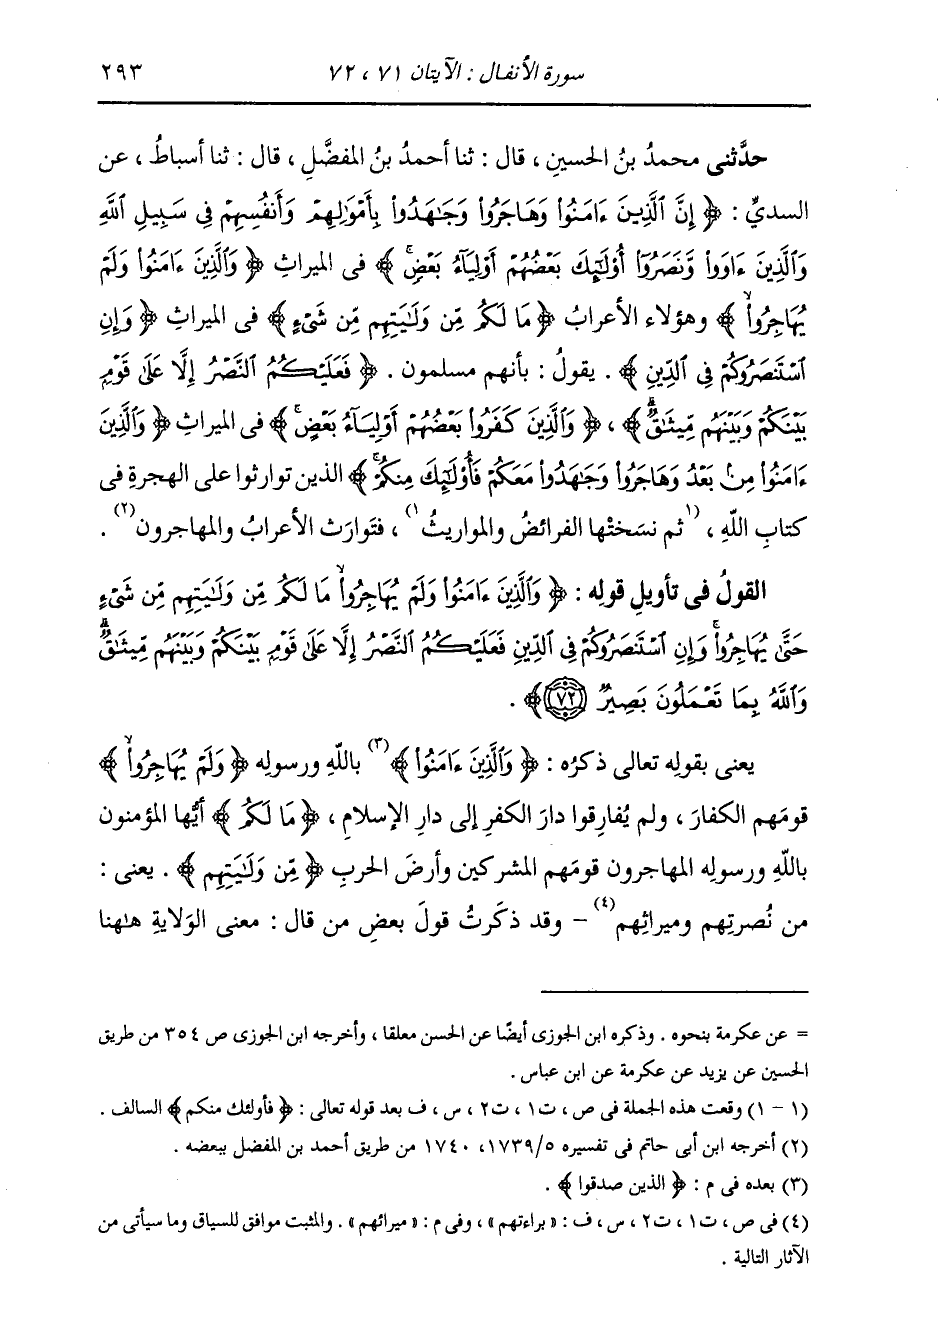 سورة الأنفال : الآيتان ٧١ ، ٧٢
٢٩٣
حدَّثنى محمدُ بنُ الحسينِ ، قال : ثنا أحمدُ بنُ المفضَّلِ ، قال : ثنا أسباطُ ، عن
السديِّ : ﴿ إِنَّ ٱلَّذِينَ ءَامَنُوا۟ وَهَاجَرُوا۟ وَجَـٰهَدُوا۟ بِأَمْوَٰلِهِمْ وَأَنفُسِهِمْ فِى سَبِيلِ ٱللَّهِ
وَٱلَّذِينَ ءَاوَوا۟ وَّنَصَرُوٓا۟ أُو۟لَـٰٓئِكَ بَعْضُهُمْ أَوْلِيَآءُ بَعْضٍۚ ﴾ فى الميراثِ ﴿ وَٱلَّذِينَ ءَامَنُوا۟ وَلَمْ
يُهَاجِرُوا۟ ﴾ وهؤلاء الأعرابُ ﴿ مَا لَكُم مِّن وَلَـٰيَتِهِم مِّن شَىْءٍ ﴾ فى الميراثِ ﴿ وَإِنِ
ٱسْتَنصَرُوكُمْ فِى ٱلدِّينِ ﴾ . يقولُ : بأنهم مسلمون . ﴿ فَعَلَيْكُمُ ٱلنَّصْرُ إِلَّا عَلَىٰ قَوْمٍۭ
بَيْنَكُمْ وَبَيْنَهُم مِّيثَـٰقٌۗ ﴾ ، ﴿ وَٱلَّذِينَ كَفَرُوا۟ بَعْضُهُمْ أَوْلِيَآءُ بَعْضٍۚ ﴾ فى الميراثِ ﴿ وَٱلَّذِينَ
ءَامَنُوا۟ مِنۢ بَعْدُ وَهَاجَرُوا۟ وَجَـٰهَدُوا۟ مَعَكُمْ فَأُو۟لَـٰٓئِكَ مِنكُمْۚ ﴾ الذين توارثوا على الهجرةِ فى
كتابِ اللَّهِ ، (١ثم نسَختْها الفرائضُ والمواريثُ ١) ، فتَوارَث الأعرابُ والمهاجرون(٢) .
القولُ فى تأويلِ قولِه : ﴿ وَٱلَّذِينَ ءَامَنُوا۟ وَلَمْ يُهَاجِرُوا۟ مَا لَكُم مِّن وَلَـٰيَتِهِم مِّن شَىْءٍ
حَتَّىٰ يُهَاجِرُوا۟ۚ وَإِنِ ٱسْتَنصَرُوكُمْ فِى ٱلدِّينِ فَعَلَيْكُمُ ٱلنَّصْرُ إِلَّا عَلَىٰ قَوْمٍۭ بَيْنَكُمْ وَبَيْنَهُم مِّيثَـٰقٌۗ
وَٱللَّهُ بِمَا تَعْمَلُونَ بَصِيرٌ ٧٢ ﴾ .
يعنى بقولِه تعالى ذكرُه : ﴿ وَٱلَّذِينَ ءَامَنُوا۟ ﴾(٣) باللَّهِ ورسولِه ﴿ وَلَمْ يُهَاجِرُوا۟ ﴾
قومَهم الكفارَ ، ولم يُفارِقوا دارَ الكفرِ إلى دارِ الإسلامِ ، ﴿ مَا لَكُم ﴾ أيُّها المؤمنون
باللَّهِ ورسولِه المهاجرون قومَهم المشركين وأرضَ الحربِ ﴿ مِّن وَلَـٰيَتِهِم ﴾ . يعنى :
من نُصرتِهم وميراثِهم(٤) - وقد ذكَرتُ قولَ بعضِ من قال : معنى الوَلايةِ هـٰهنا
= عن عكرمة بنحوه . وذكره ابن الجوزى أيضًا عن الحسن معلقا ، وأخرجه ابن الجوزى ص ٣٥٤ من طريق
الحسين عن يزيد عن عكرمة عن ابن عباس .
(١ - ١) وقعت هذه الجملة فى ص ، ت١ ، ت٢ ، س ، ف بعد قوله تعالى : ﴿ فأولئك منكم ﴾ السالف .
(٢) أخرجه ابن أبى حاتم فى تفسيره ١٧٣٩/٥، ١٧٤٠ من طريق أحمد بن المفضل ببعضه .
(٣) بعده فى م : ﴿ الذين صدقوا ﴾ .
(٤) فى ص ، ت١ ، ت٢ ، س ، ف : « براءتهم » ، وفى م : « ميرائهم » . والمثبت موافق للسياق وما سيأتى من
الآثار التالية .